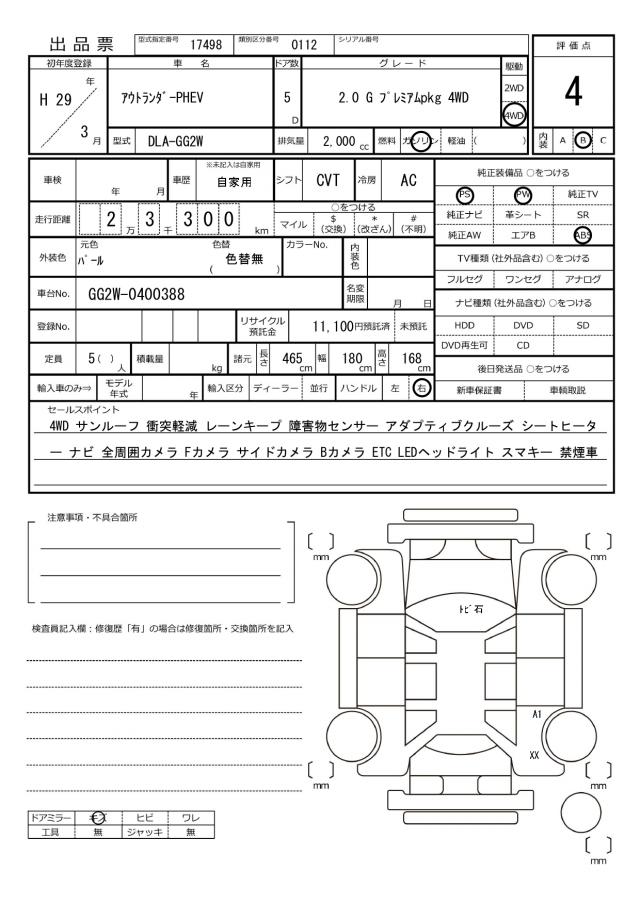 出品票 型式指定番号 17498 類別区分番号 0112 シリアル番号
評価点
4
初年度登録 車名 ドア数 グレード 駆動
H 29 年 3 月 アウトランダ-PHEV 5 D 2.0 G プレミアムpkg 4WD 2WD 4WD
型式 DLA-GG2W 排気量 2,000 cc 燃料 ガソリン 軽油 ( )
内装 A B C
車検 年 月 車歴 ※未記入は自家用 自家用 シフト CVT 冷房 AC
走行距離 2 万 3 千 3 0 0 km ○をつける
マイル $(交換) *(改ざん) #(不明)
外装色 元色 パール 色替 ( 色替無 ) カラーNo. 内装色
車台No. GG2W-0400388 名変期限 月 日
登録No. リサイクル預託金 11,100円預託済 未預託
定員 5( )人 積載量 kg 諸元 長さ 465cm 幅 180cm 高さ 168cm
輸入車のみ⇒ モデル年式 年 輸入区分 ディーラー 並行 ハンドル 左 右
純正装備品 ○をつける
PS PW 純正TV
純正ナビ 革シート SR
純正AW エアB ABS
TV種類(社外品含む)○をつける
フルセグ ワンセグ アナログ
ナビ種類(社外品含む)○をつける
HDD DVD SD
DVD再生可 CD
後日発送品 ○をつける
新車保証書 車輌取説
セールスポイント
4WD サンルーフ 衝突軽減 レーンキープ 障害物センサー アダプティブクルーズ シートヒータ
ー ナビ 全周囲カメラ Fカメラ サイドカメラ Bカメラ ETC LEDヘッドライト スマキー 禁煙車
注意事項・不具合箇所
検査員記入欄：修復歴「有」の場合は修復箇所・交換箇所を記入
[ ] mm
[ ] mm
トビ石
A1
XX
[ ] mm
[ ] mm
[ ] mm
ドアミラー キズ ヒビ ワレ
工具 無 ジャッキ 無